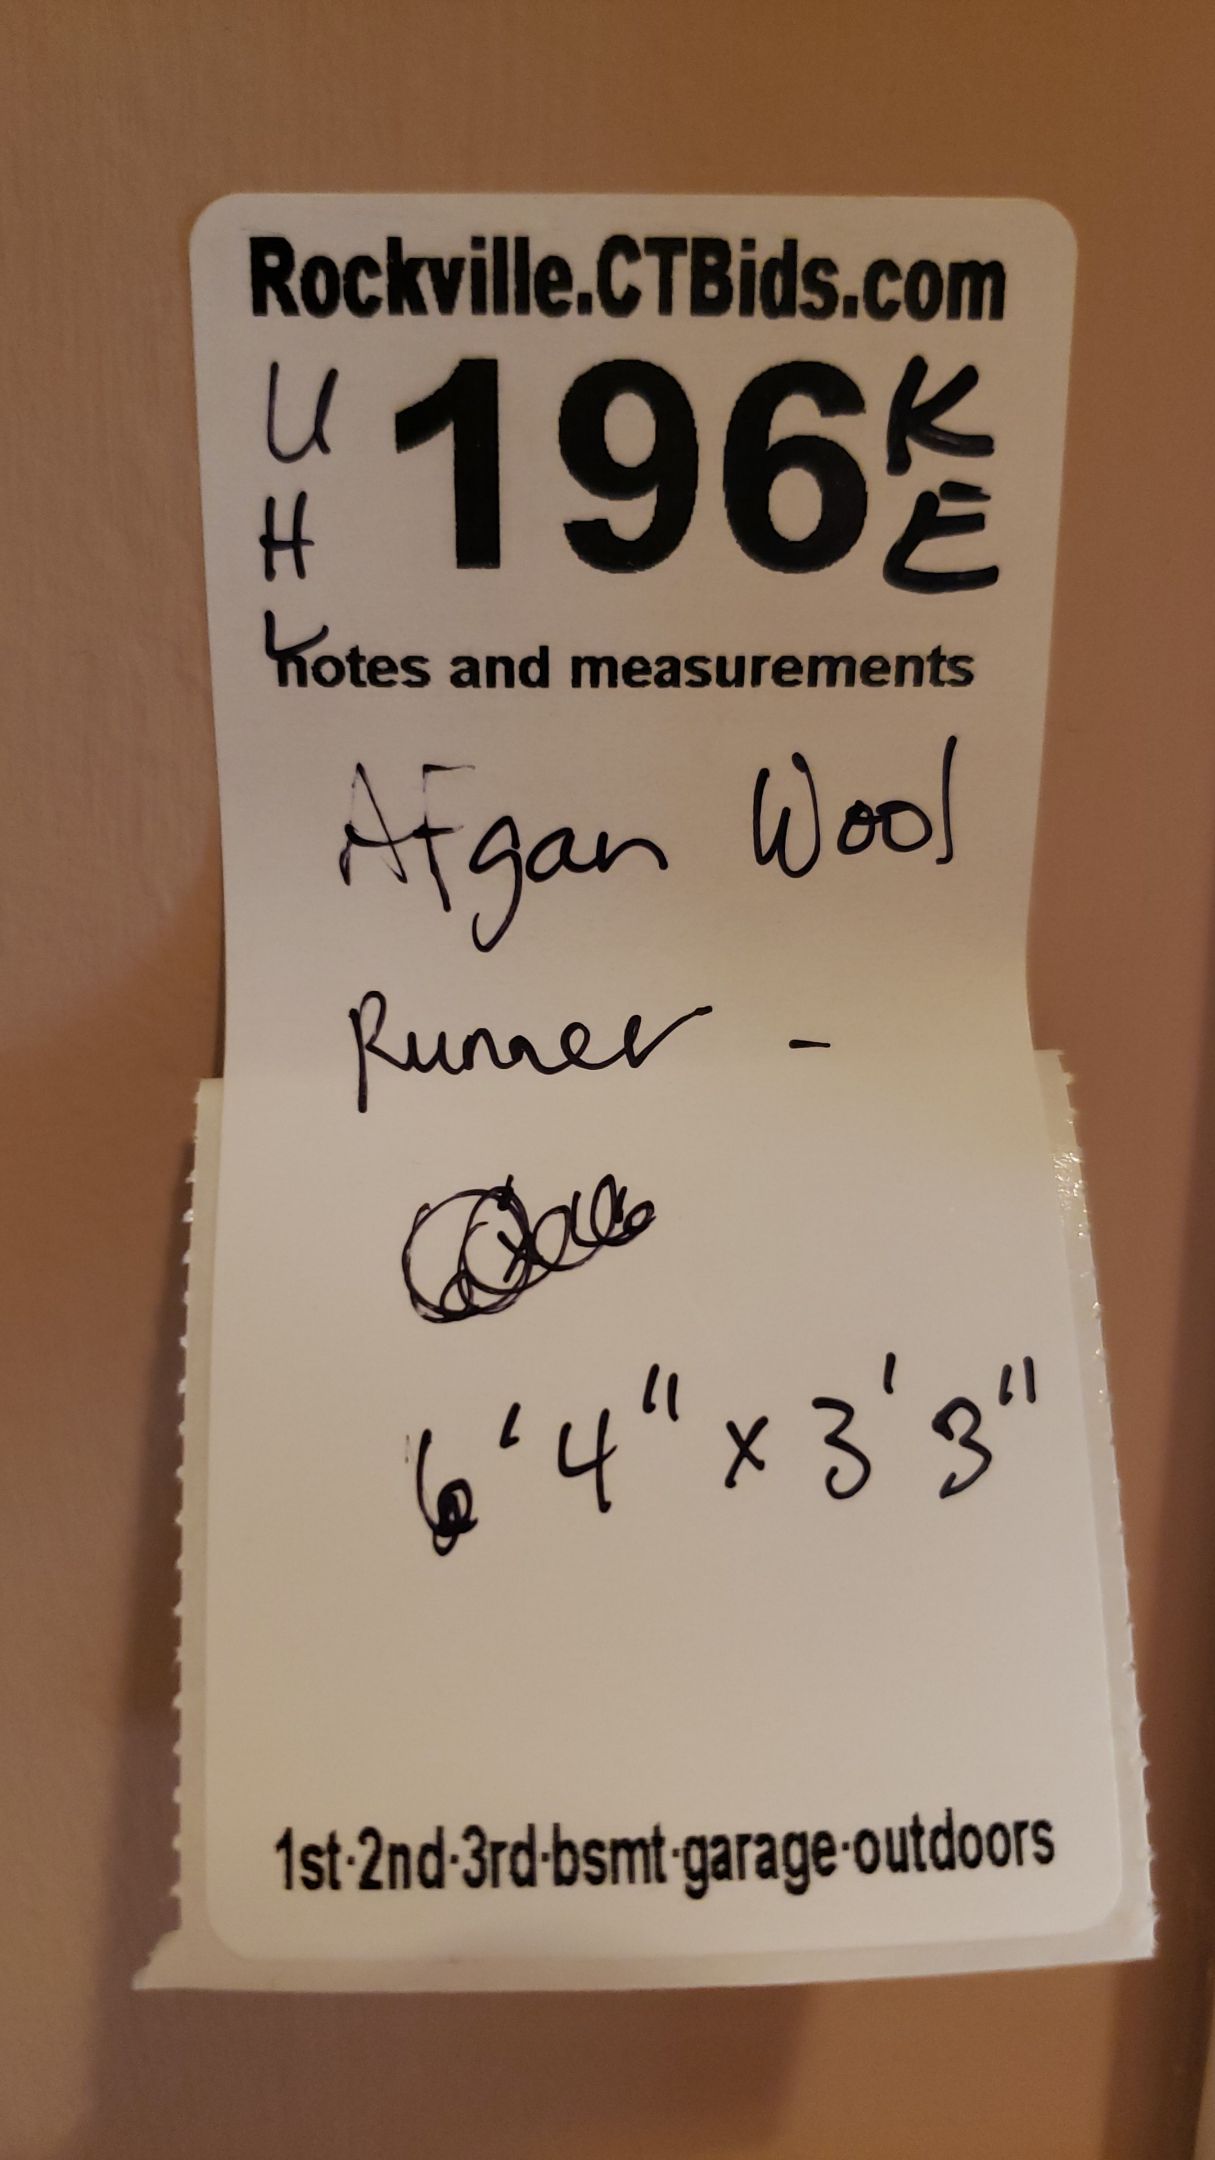 Rockville.CTBids.com
U 196 K
H E
L
notes and measurements
AFgan Wool
Runner -
6'4" x 3'3"
1st·2nd·3rd·bsmt·garage·outdoors